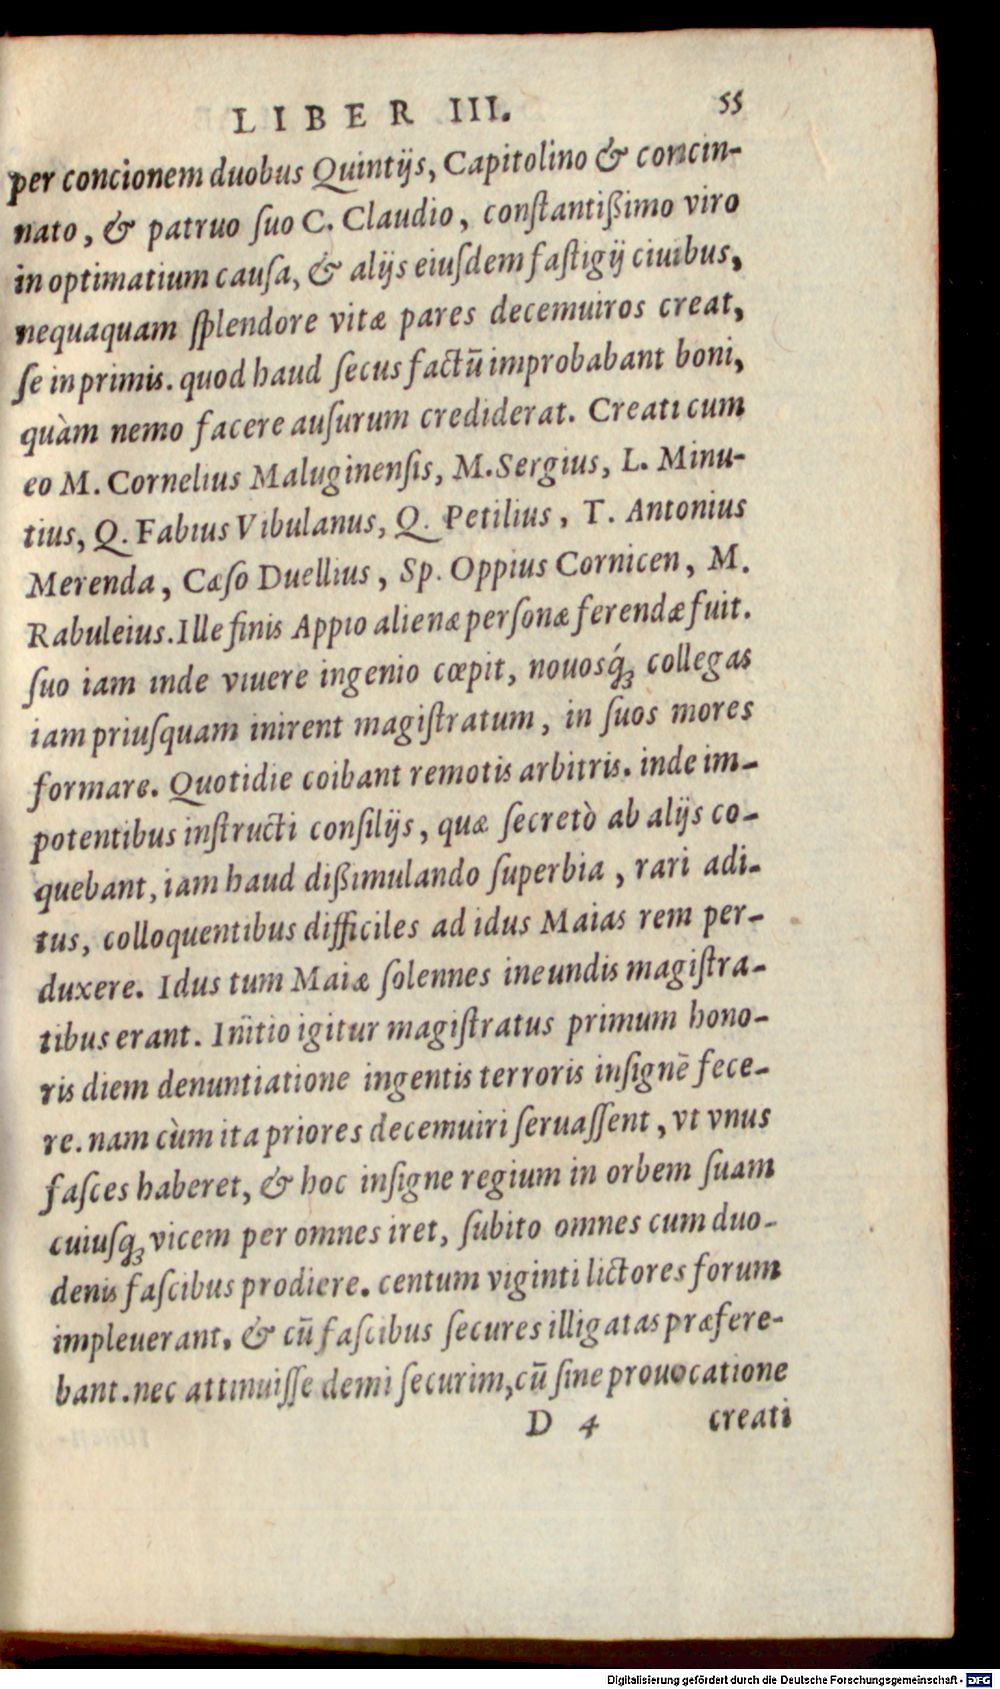 LIBER III. 55
per concionem duobus Quintijs, Capitolino & concin-
nato, & patruo ſuo C. Claudio, conſtantißimo viro
in optimatium cauſa, & alijs eiuſdem faſtigij ciuibus,
nequaquam ſplendore vitæ pares decemuiros creat,
ſe in primis. quod haud ſecus factū improbabant boni,
quàm nemo facere auſurum crediderat. Creati cum
eo M. Cornelius Maluginenſis, M. Sergius, L. Minu-
tius, Q. Fabius Vibulanus, Q. Petilius, T. Antonius
Merenda, Cæſo Duellius, Sp. Oppius Cornicen, M.
Rabuleius. Ille finis Appio alienæ perſonæ ferendæ fuit.
ſuo iam inde viuere ingenio cœpit, nouosq́ꝫ collegas
iam priuſquam inirent magiſtratum, in ſuos mores
formare. Quotidie coibant remotis arbitris. inde im-
potentibus inſtructi conſilijs, quæ ſecretò ab alijs co-
quebant, iam haud dißimulando ſuperbia, rari adi-
tus, colloquentibus difficiles ad idus Maias rem per-
duxere. Idus tum Maiæ ſolennes ineundis magiſtra-
tibus erant. Initio igitur magiſtratus primum hono-
ris diem denuntiatione ingentis terroris inſignē fece-
re. nam cùm ita priores decemuiri ſeruaſſent, vt vnus
faſces haberet, & hoc inſigne regium in orbem ſuam
cuiuſqꝫ vicem per omnes iret, ſubito omnes cum duo-
denis faſcibus prodiere. centum viginti lictores forum
impleuerant. & cū faſcibus ſecures illigatas præfere-
bant. nec attinuiſſe demi ſecurim, cū ſine prouocatione
D 4 creati
Digitalisierung gefördert durch die Deutsche Forschungsgemeinschaft - DFG